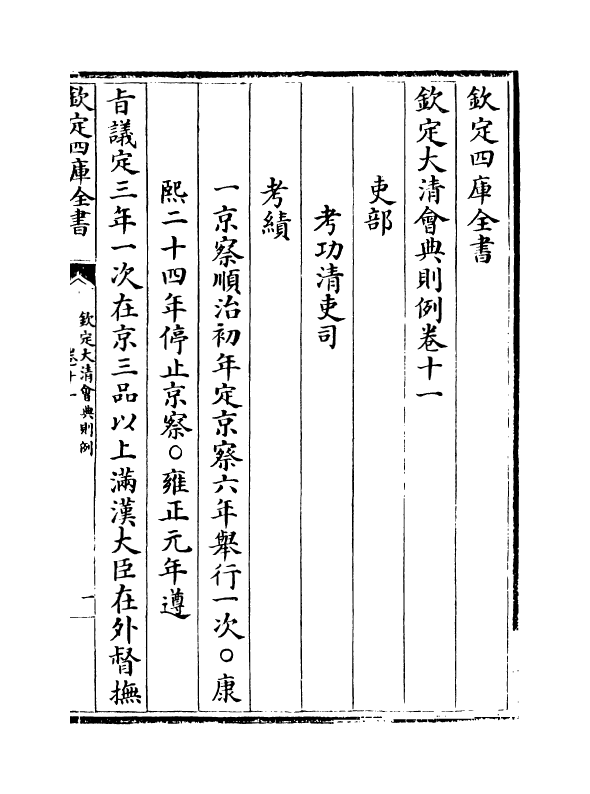 欽定四庫全書
欽定大清會典則例卷十一
吏部
考功清吏司
考績
一京察順治初年定京察六年舉行一次○康
熙二十四年停止京察○雍正元年遵
旨議定三年一次在京三品以上滿漢大臣在外督撫
欽定四庫全書
欽定大清會典則例
卷十一
一